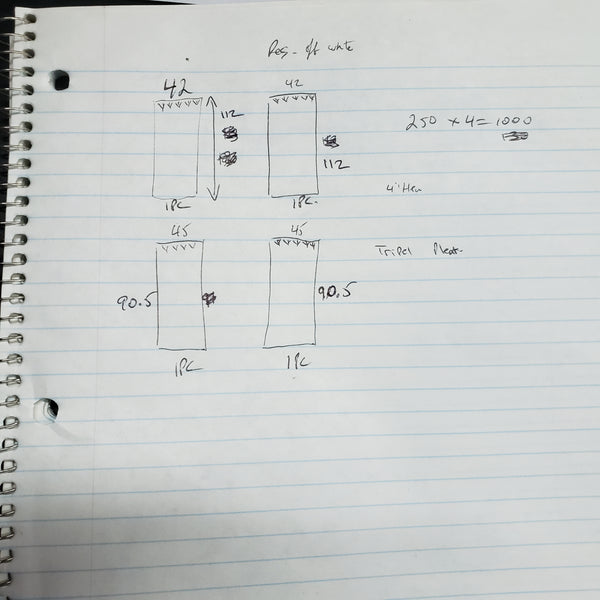 off white
42
42
112
112
250 x 4 = 1000
1PC
1PC.
4" Hem
45
45
Tripel Pleat
90.5
90.5
1PC
1PC